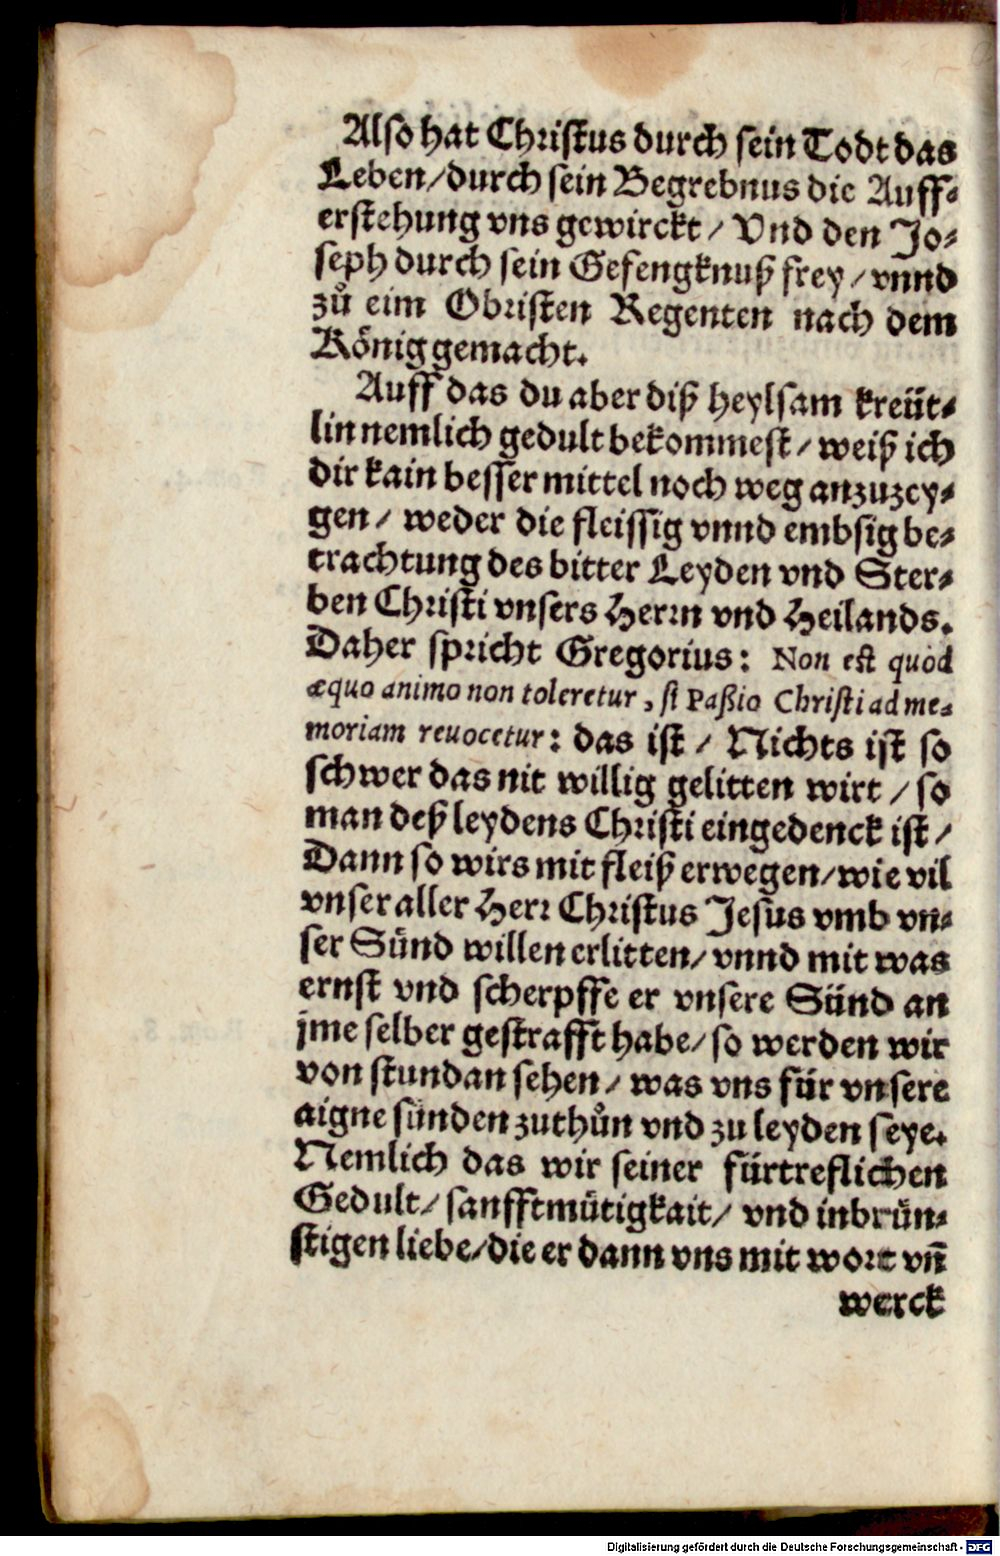 Also hat Christus durch sein Todt das
Leben/durch sein Begrebnus die Auff-
erstehung vns gewirckt/ Vnd den Jo-
seph durch sein Gefengknuß frey/ vnnd
zů eim Obristen Regenten nach dem
König gemacht.
Auff das du aber diß heylsam kreüt-
lin nemlich gedult bekommest/ weiß ich
dir kain besser mittel noch weg anzuzey-
gen/ weder die fleissig vnnd embsig be-
trachtung des bitter Leyden vnd Ster-
ben Christi vnsers Herrn vnd Heilands.
Daher spricht Gregorius: Non est quod
æquo animo non toleretur, si Paßio Christi ad me-
moriam reuocetur: das ist/ Nichts ist so
schwer das nit willig gelitten wirt/ so
man deß leydens Christi eingedenck ist/
Dann so wirs mit fleiß erwegen/wie vil
vnser aller Herr Christus Jesus vmb vn-
ser Sünd willen erlitten/ vnnd mit was
ernst vnd scherpffe er vnsere Sünd an
jme selber gestrafft habe/ so werden wir
von stundan sehen/ was vns für vnsere
aigne sünden zuthůn vnd zu leyden seye.
Nemlich das wir seiner fürtreflichen
Gedult/ sanfftmütigkait/ vnd inbrün-
stigen liebe/die er dann vns mit wort vñ
werck
Digitalisierung gefördert durch die Deutsche Forschungsgemeinschaft - DFG